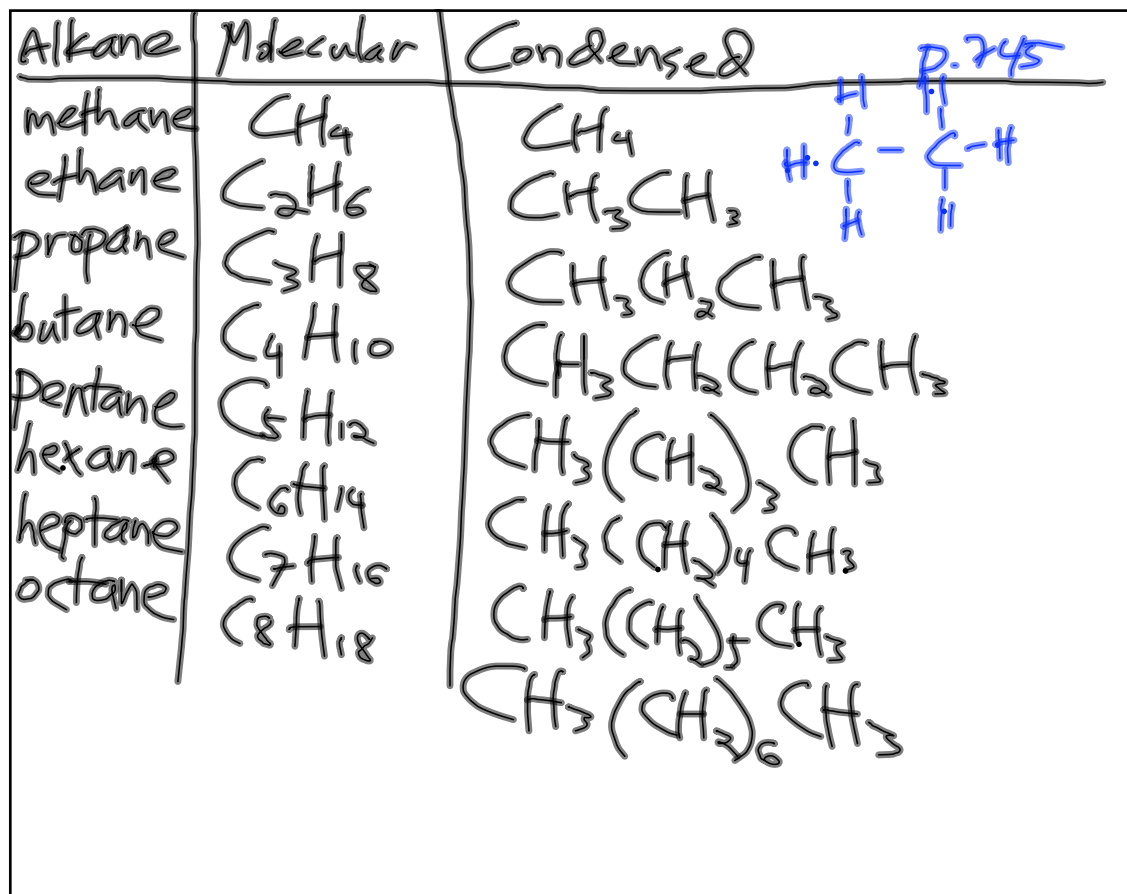 Alkane Molecular Condensed p.745
methane CH₄ CH₄
ethane C₂H₆ CH₃CH₃
propane C₃H₈ CH₃CH₂CH₃
butane C₄H₁₀ CH₃CH₂CH₂CH₃
Pentane C₅H₁₂ CH₃(CH₂)₃CH₃
hexane C₆H₁₄ CH₃(CH₂)₄CH₃
heptane C₇H₁₆ CH₃(CH₂)₅CH₃
octane C₈H₁₈ CH₃(CH₂)₆CH₃
H H
H C – C – H
H H